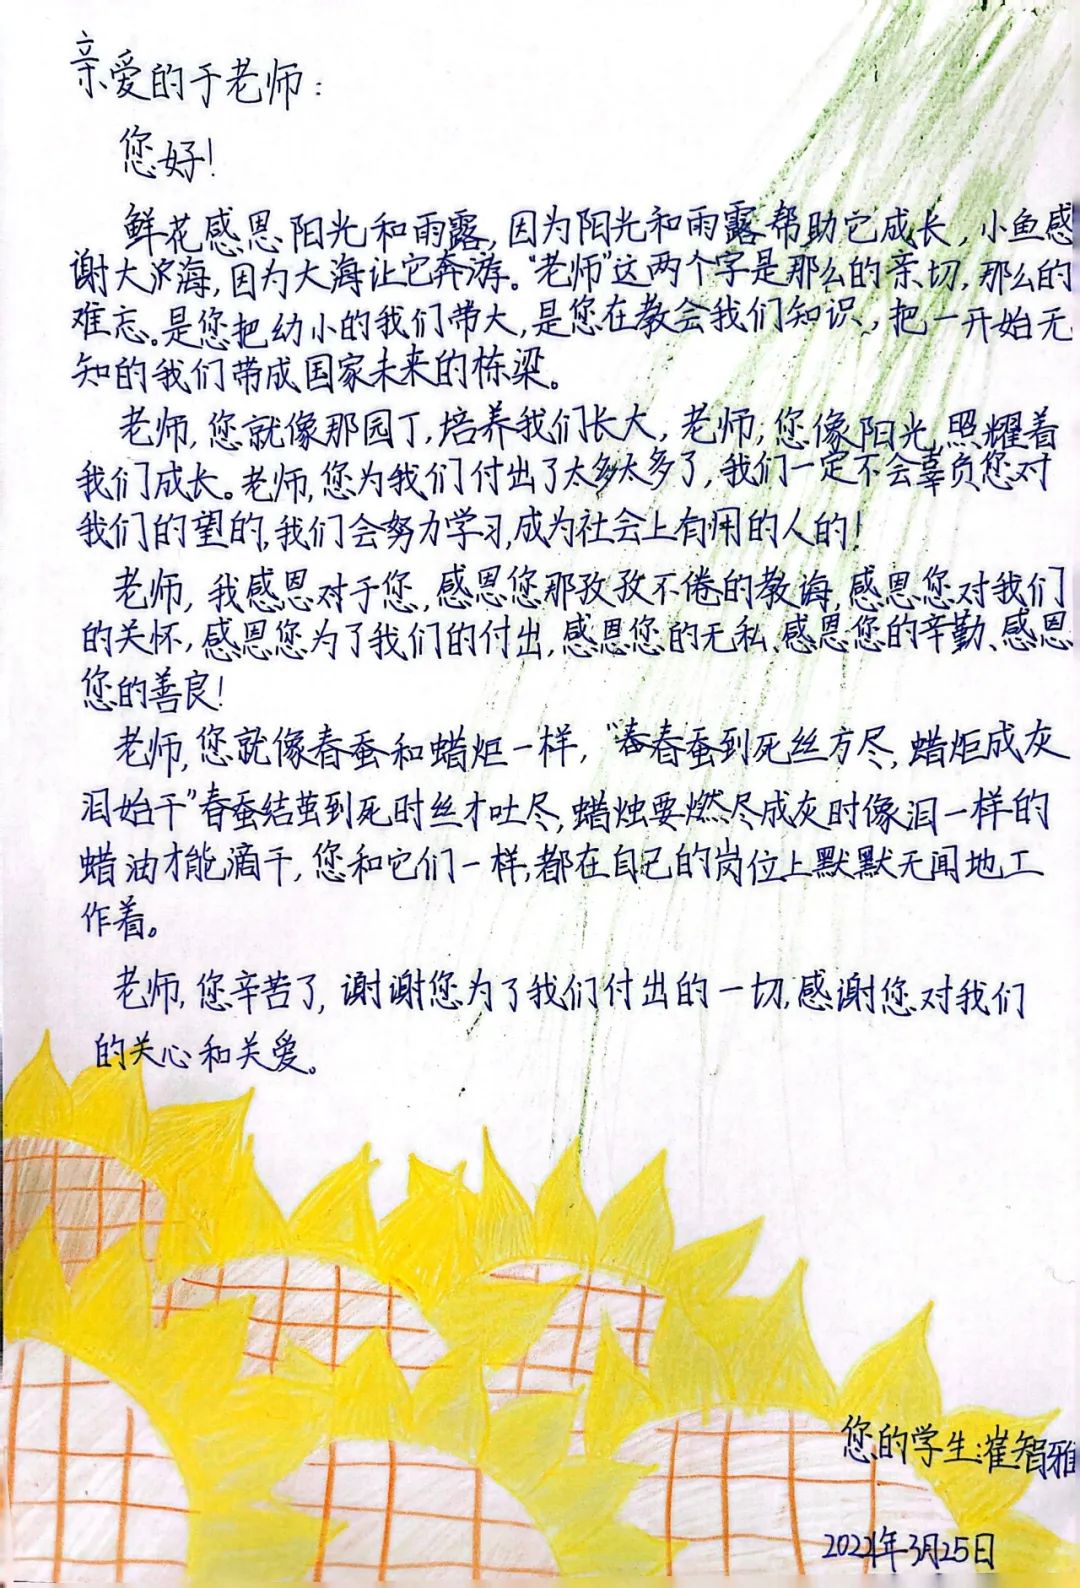 亲爱的于老师：
您好！
鲜花感恩阳光和雨露，因为阳光和雨露帮助它成长，小鱼感
谢大海，因为大海让它奔游。“老师”这两个字是那么的亲切，那么的
难忘。是您把幼小的我们带大，是您在教会我们知识，把一开始无
知的我们带成国家未来的栋梁。
老师，您就像那园丁，培养我们长大，老师，您像阳光，照耀着
我们成长。老师，您为我们付出了太多太多了，我们一定不会辜负您对
我们的望的，我们会努力学习，成为社会上有用的人的！
老师，我感恩对于您，感恩您那孜孜不倦的教诲，感恩您对我们
的关怀，感恩您为了我们的付出，感恩您的无私、感恩您的辛勤、感恩
您的善良！
老师，您就像春蚕和蜡炬一样，“春蚕到死丝方尽，蜡炬成灰
泪始干”春蚕结茧到死时丝才吐尽，蜡烛要燃尽成灰时像泪一样的
蜡油才能滴干，您和它们一样，都在自己的岗位上默默无闻地工
作着。
老师，您辛苦了，谢谢您为了我们付出的一切，感谢您对我们
的关心和关爱。
您的学生：崔智雅
年3月25日